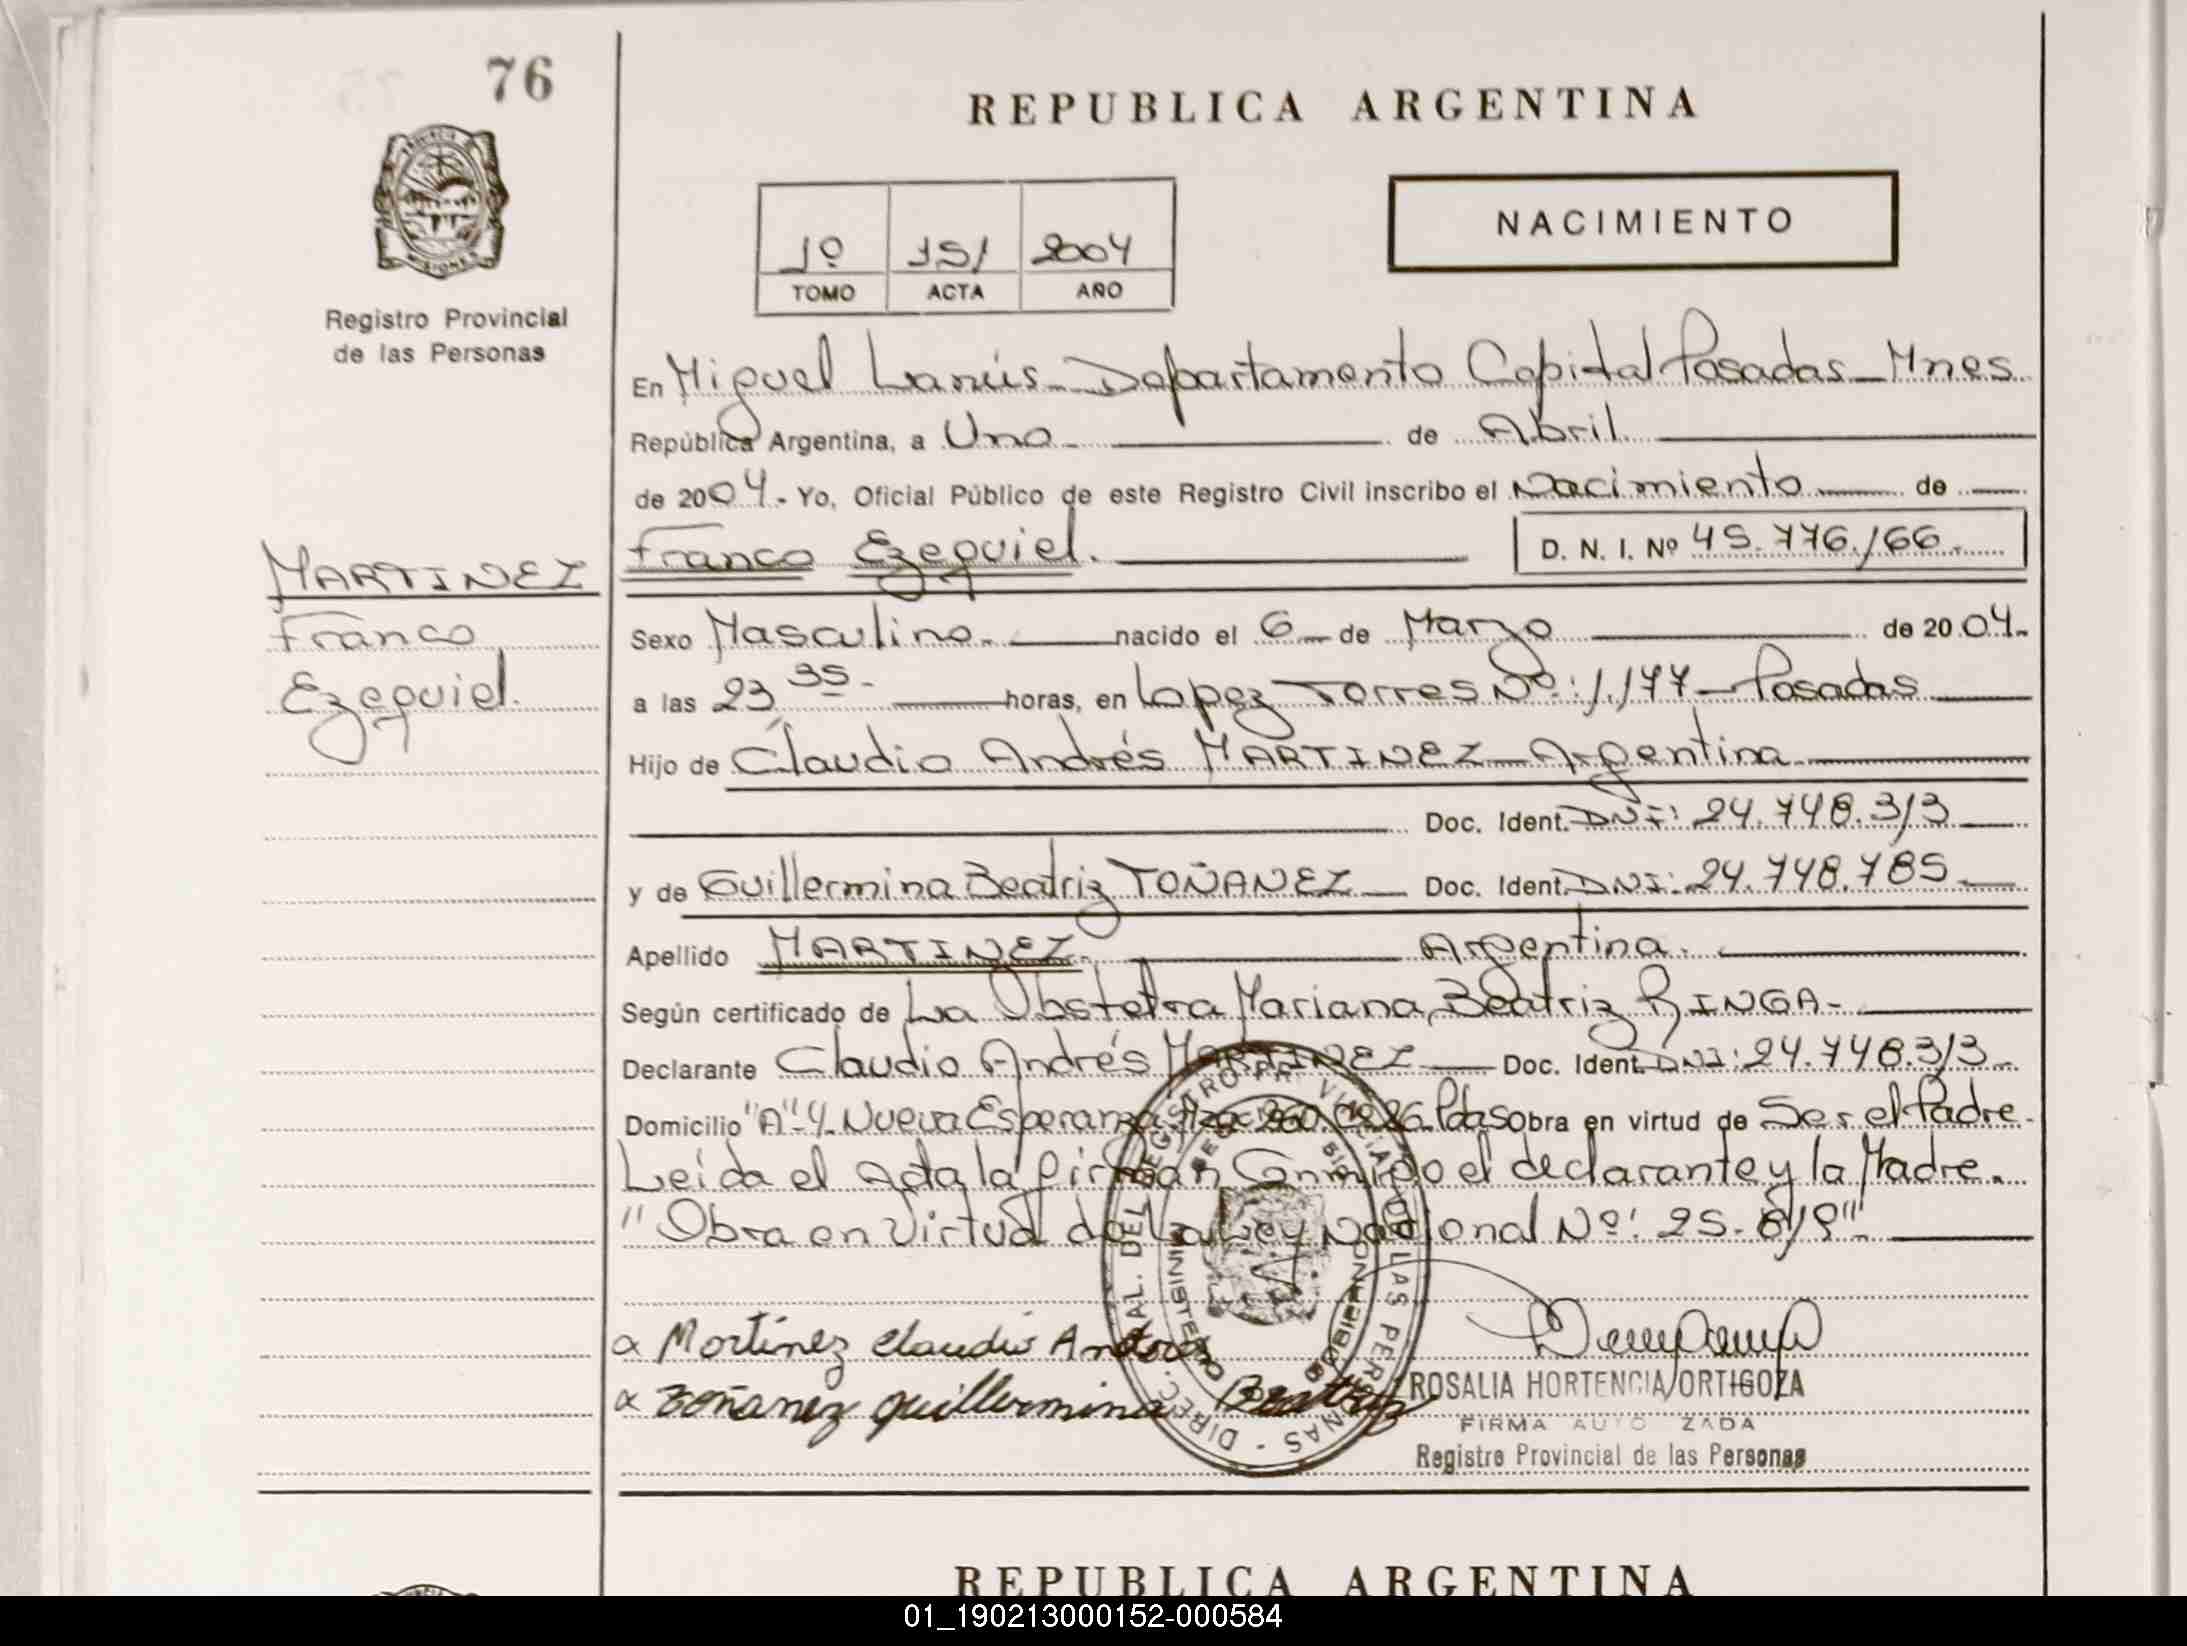 76
REPUBLICA ARGENTINA
PROVINCIA
MISIONES
Registro Provincial
de las Personas
1º 151 2004
TOMO ACTA AÑO
NACIMIENTO
En Miguel Lanús - Departamento Capital Posadas - Mnes
República Argentina, a Uno de Abril
de 2004.- Yo, Oficial Público de este Registro Civil inscribo el Nacimiento de
Franco Ezequiel. D. N. I. Nº 45.776.166.
MARTINEZ
Franco
Ezequiel.
Sexo Masculino. nacido el 6 de Marzo de 2004.
a las 23 35 horas, en Lopez Torres Nº: 1.177 - Posadas
Hijo de Claudio Andrés MARTINEZ - Argentina
Doc. Ident. DNI: 24.748.313
y de Guillermina Beatriz TOÑANEZ Doc. Ident. DNI: 24.748.785
Apellido MARTINEZ. Argentina.
Según certificado de La Obstetra Mariana Beatriz RINGA-
Declarante Claudio Andrés MARTINEZ Doc. Ident. DNI: 24.748.313
Domicilio "A"-4 Nueva Esperanza 260 26 Pdas obra en virtud de Ser el Padre.
Leida el Acta la firman Conmigo el declarante y la Madre.
"Obra en Virtud de la Ley Nacional Nº: 25.819"
Martinez Claudio Andres
Toñanez Guillermina Beatriz
ROSALIA HORTENCIA ORTIGOZA
FIRMA AUTO ZADA
Registro Provincial de las Personas
DIREC. GRAL. DEL REGISTRO PROVINCIAL DE LAS PERSONAS -
MINISTERIO GOBIERNO
REPUBLICA ARGENTINA
01_190213000152-000584